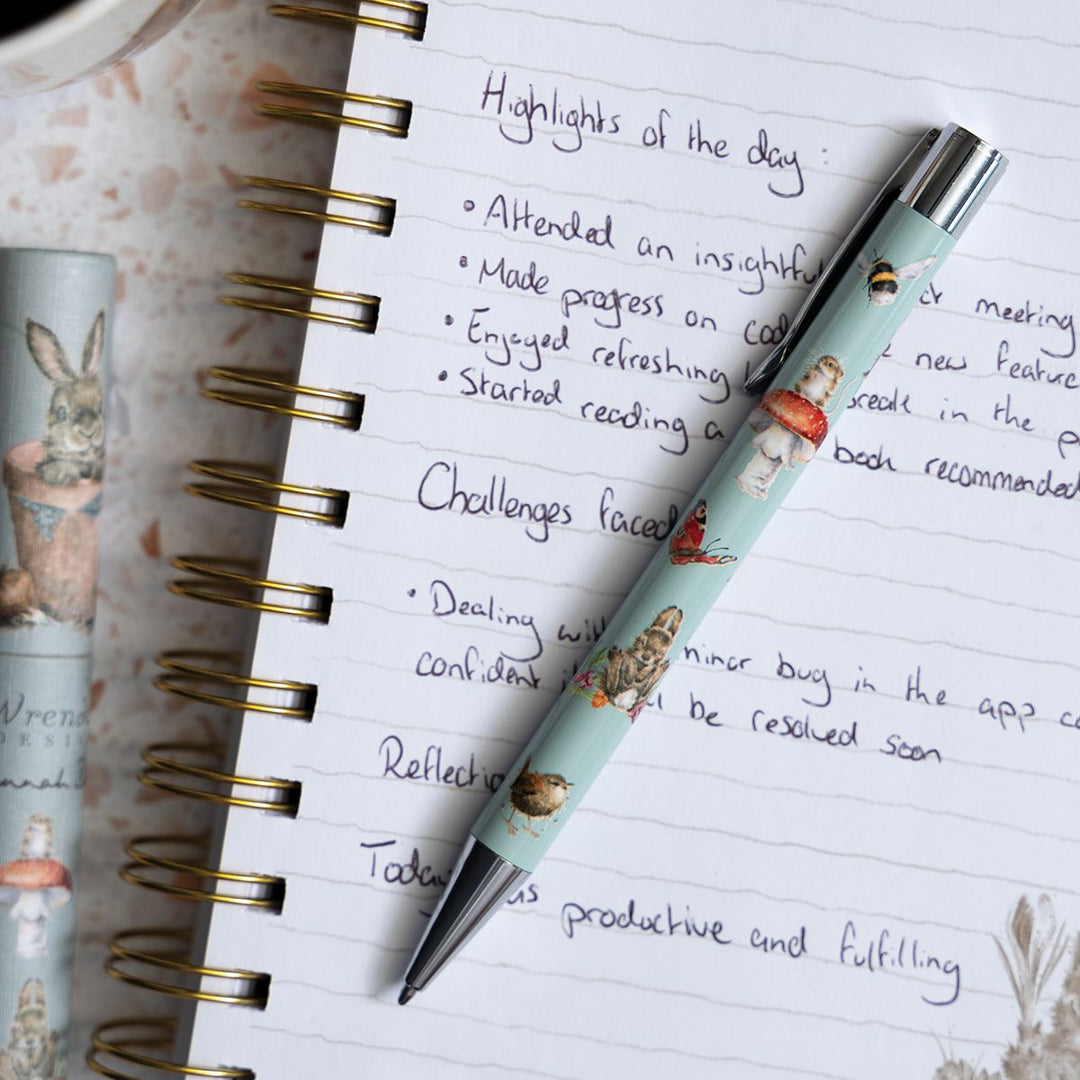 Highlights of the day :
• Attended an insightfu meeting
• Made progress on cod new feature
• Enjoyed refreshing break in the p
• Started reading a book recommended
Challenges faced
• Dealing with minor bug in the app co
confident be resolved soon
Reflectio
Today as productive and fulfilling
Wrend
DESI
nnah